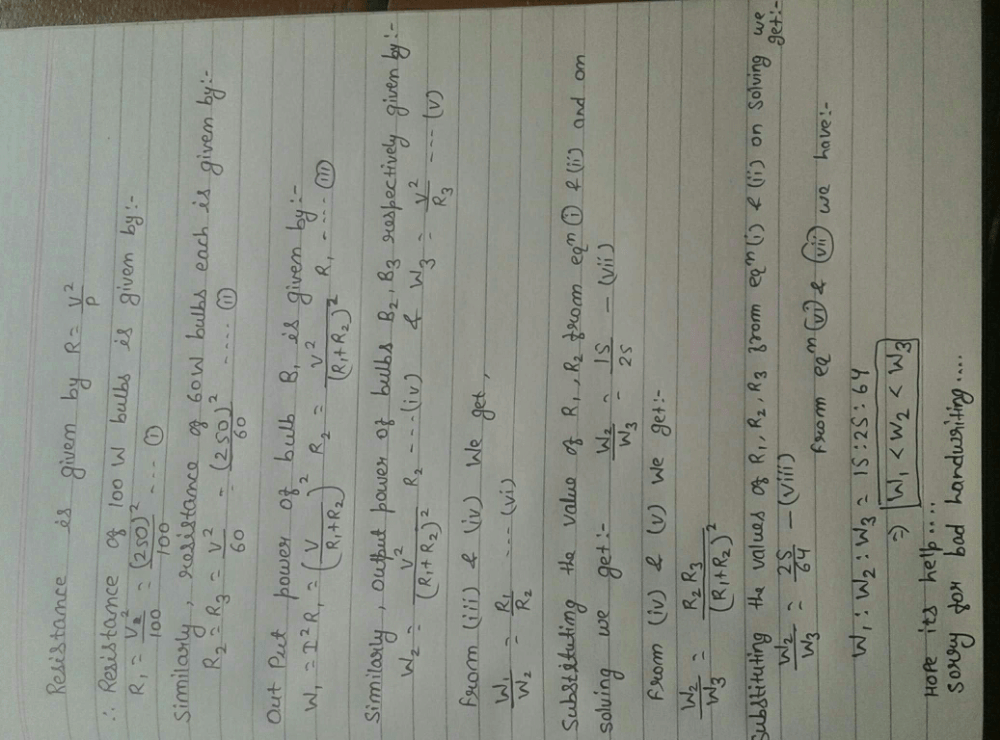 Resistance is given by R = V²/P
∴ Resistance of 100 W bulbs is given by:-
R₁ = V²/100 = (250)²/100 ---- (i)
Similarly, resistance of 60W bulbs each is given by:-
R₂ = R₃ = V²/60 = (250)²/60 ----- (ii)
Out Put power of bulb B₁ is given by:-
W₁ = I²R₁ = (V/(R₁+R₂))² R₂ = V²/(R₁+R₂)² R₁ ---- (iii)
Similarly, output power of bulbs B₂, B₃ respectively given by:-
W₂ = V²/(R₁+R₂)² R₂ ---(iv) & W₃ = V²/R₃ ---- (v)
From (iii) & (iv) We get,
W₁/W₂ = R₁/R₂ ----(vi)
Substituting the value of R₁, R₂ from eqⁿ (i) & (ii) and on
solving we get:- W₂/W₃ = 15/25 - (vii)
From (iv) & (v) we get:-
W₂/W₃ = R₂R₃/(R₁+R₂)²
Substituting the values of R₁, R₂, R₃ from eqⁿ (i) & (ii) on solving we get:-
W₂/W₃ = 25/64 - (viii)
From eqⁿ (vi) & (vii) we have:-
W₁ : W₂ : W₃ = 15 : 25 : 64
⇒ W₁ < W₂ < W₃
HOPE its help....
Sorry for bad handwriting....